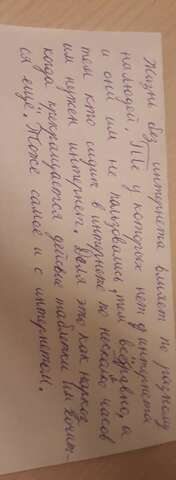 Жизнь без интернета влияет по разному
на людей. Те у которых нет интернета
и они им не пользовались, тем всёравно, а
тем кто сидит в интернете по несколько часов
им нужен интернет. Для это как наркоз
когда прекращается действие таблетки им хочит-
ся ещё. Тоже самое и с интернетом.